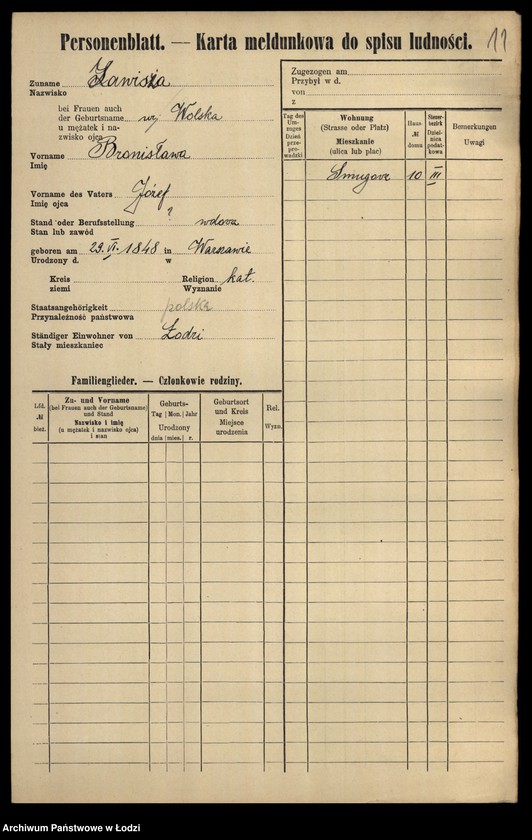 Personenblatt. — Karta meldunkowa do spisu ludności. 11
Zuname Zawisza
Nazwisko
bei Frauen auch
der Geburtsname wj Wolska
u mężatek i na-
zwisko ojca
Vorname Bronisława
Imię
Vorname des Vaters Józef
Imię ojca
Stand oder Berufsstellung ? wdowa
Stan lub zawód
geboren am 29.VI.1848 in Warszawie
Urodzony d. w
Kreis Religion kat.
ziemi Wyznanie
Staatsangehörigkeit polska
Przynależność państwowa
Ständiger Einwohner von Łodzi
Stały mieszkaniec
Zugezogen am
Przybył w d.
von
z
Tag des Um-zuges Dzień prze-pro-wadzki
Wohnung
(Strasse oder Platz)
Mieszkanie
(ulica lub plac)
Haus № domu
Steuer-bezirk Dziel-nica podat-kowa
Bemerkungen
Uwagi
Smugowa 10 III
Familienglieder. — Członkowie rodziny.
Lfd. № bież.
Zu- und Vorname
(bei Frauen auch der Geburtsname)
und Stand
Nazwisko i imię
(u mężatek i nazwisko ojca)
i stan
Geburts-
Tag Mon. Jahr
Urodzony
dnia mies. r.
Geburtsort
und Kreis
Miejsce
urodzenia
Rel.
Wyzn.
Archiwum Państwowe w Łodzi